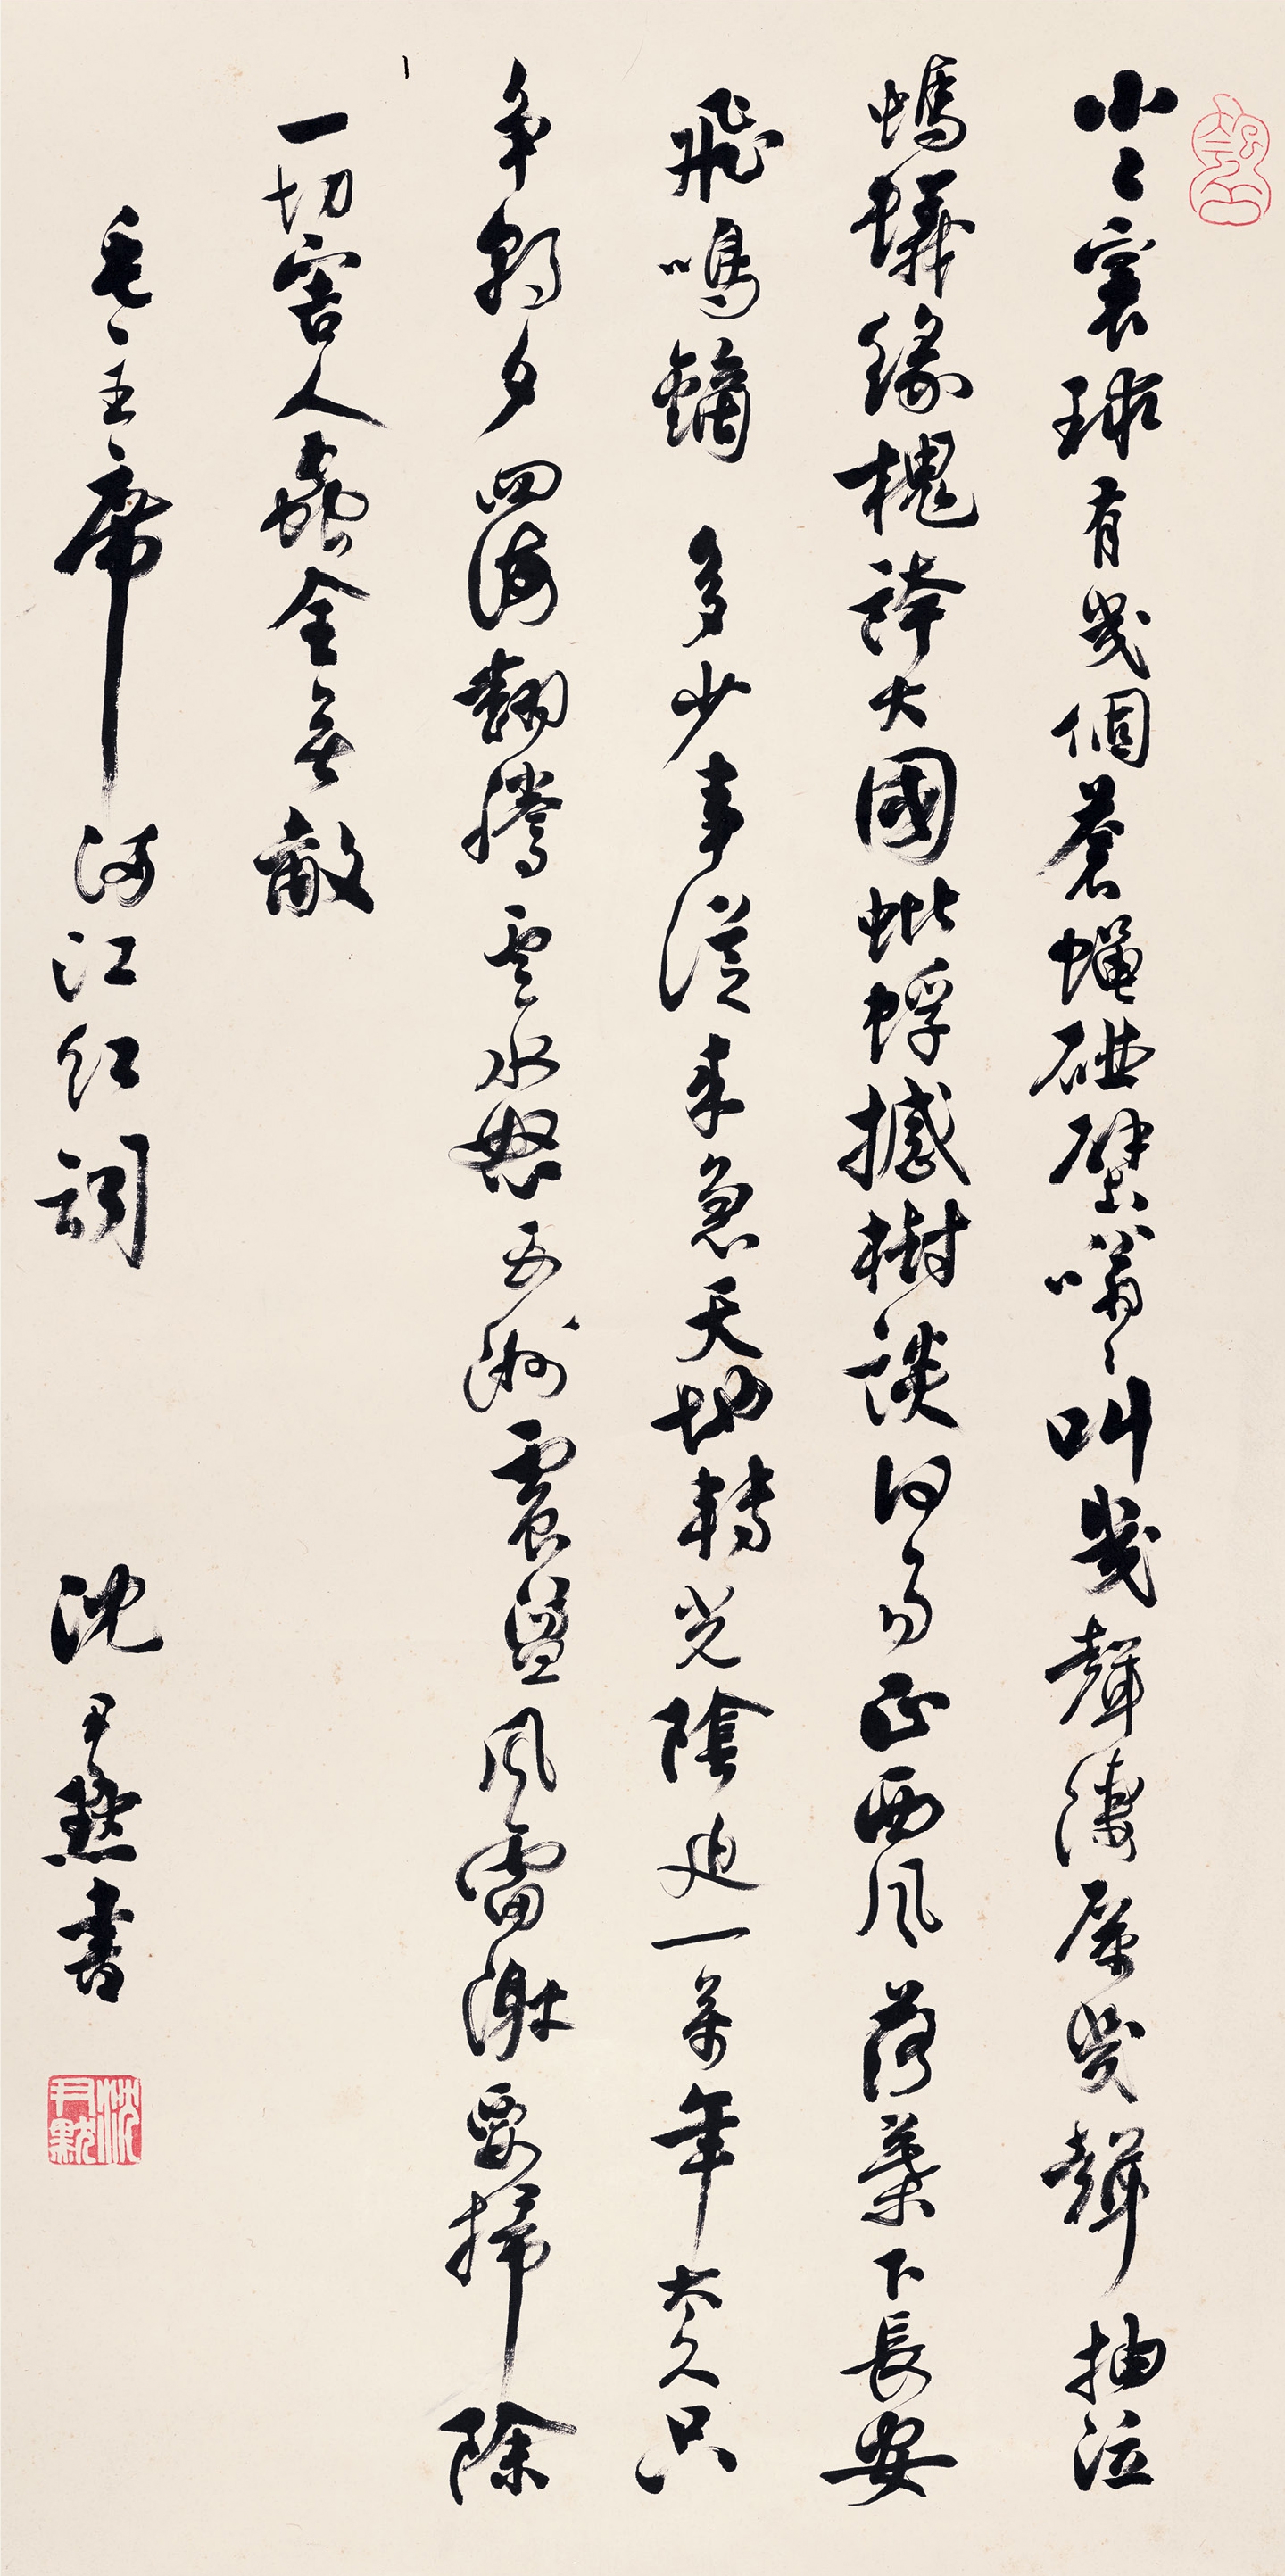 小〻寰球有幾個蒼蠅碰壁嗡〻叫幾聲淒厲幾聲抽泣
螞蟻緣槐誇大國蚍蜉撼樹談何易正西風落葉下長安
飛鳴鏑 多少事從來急天地轉光陰迫一萬年太久只
争朝夕四海翻騰雲水怒五洲震盪風雷激要掃除
一切害人蟲全無敵
毛主席滿江紅詞 沈尹默書
沈尹默